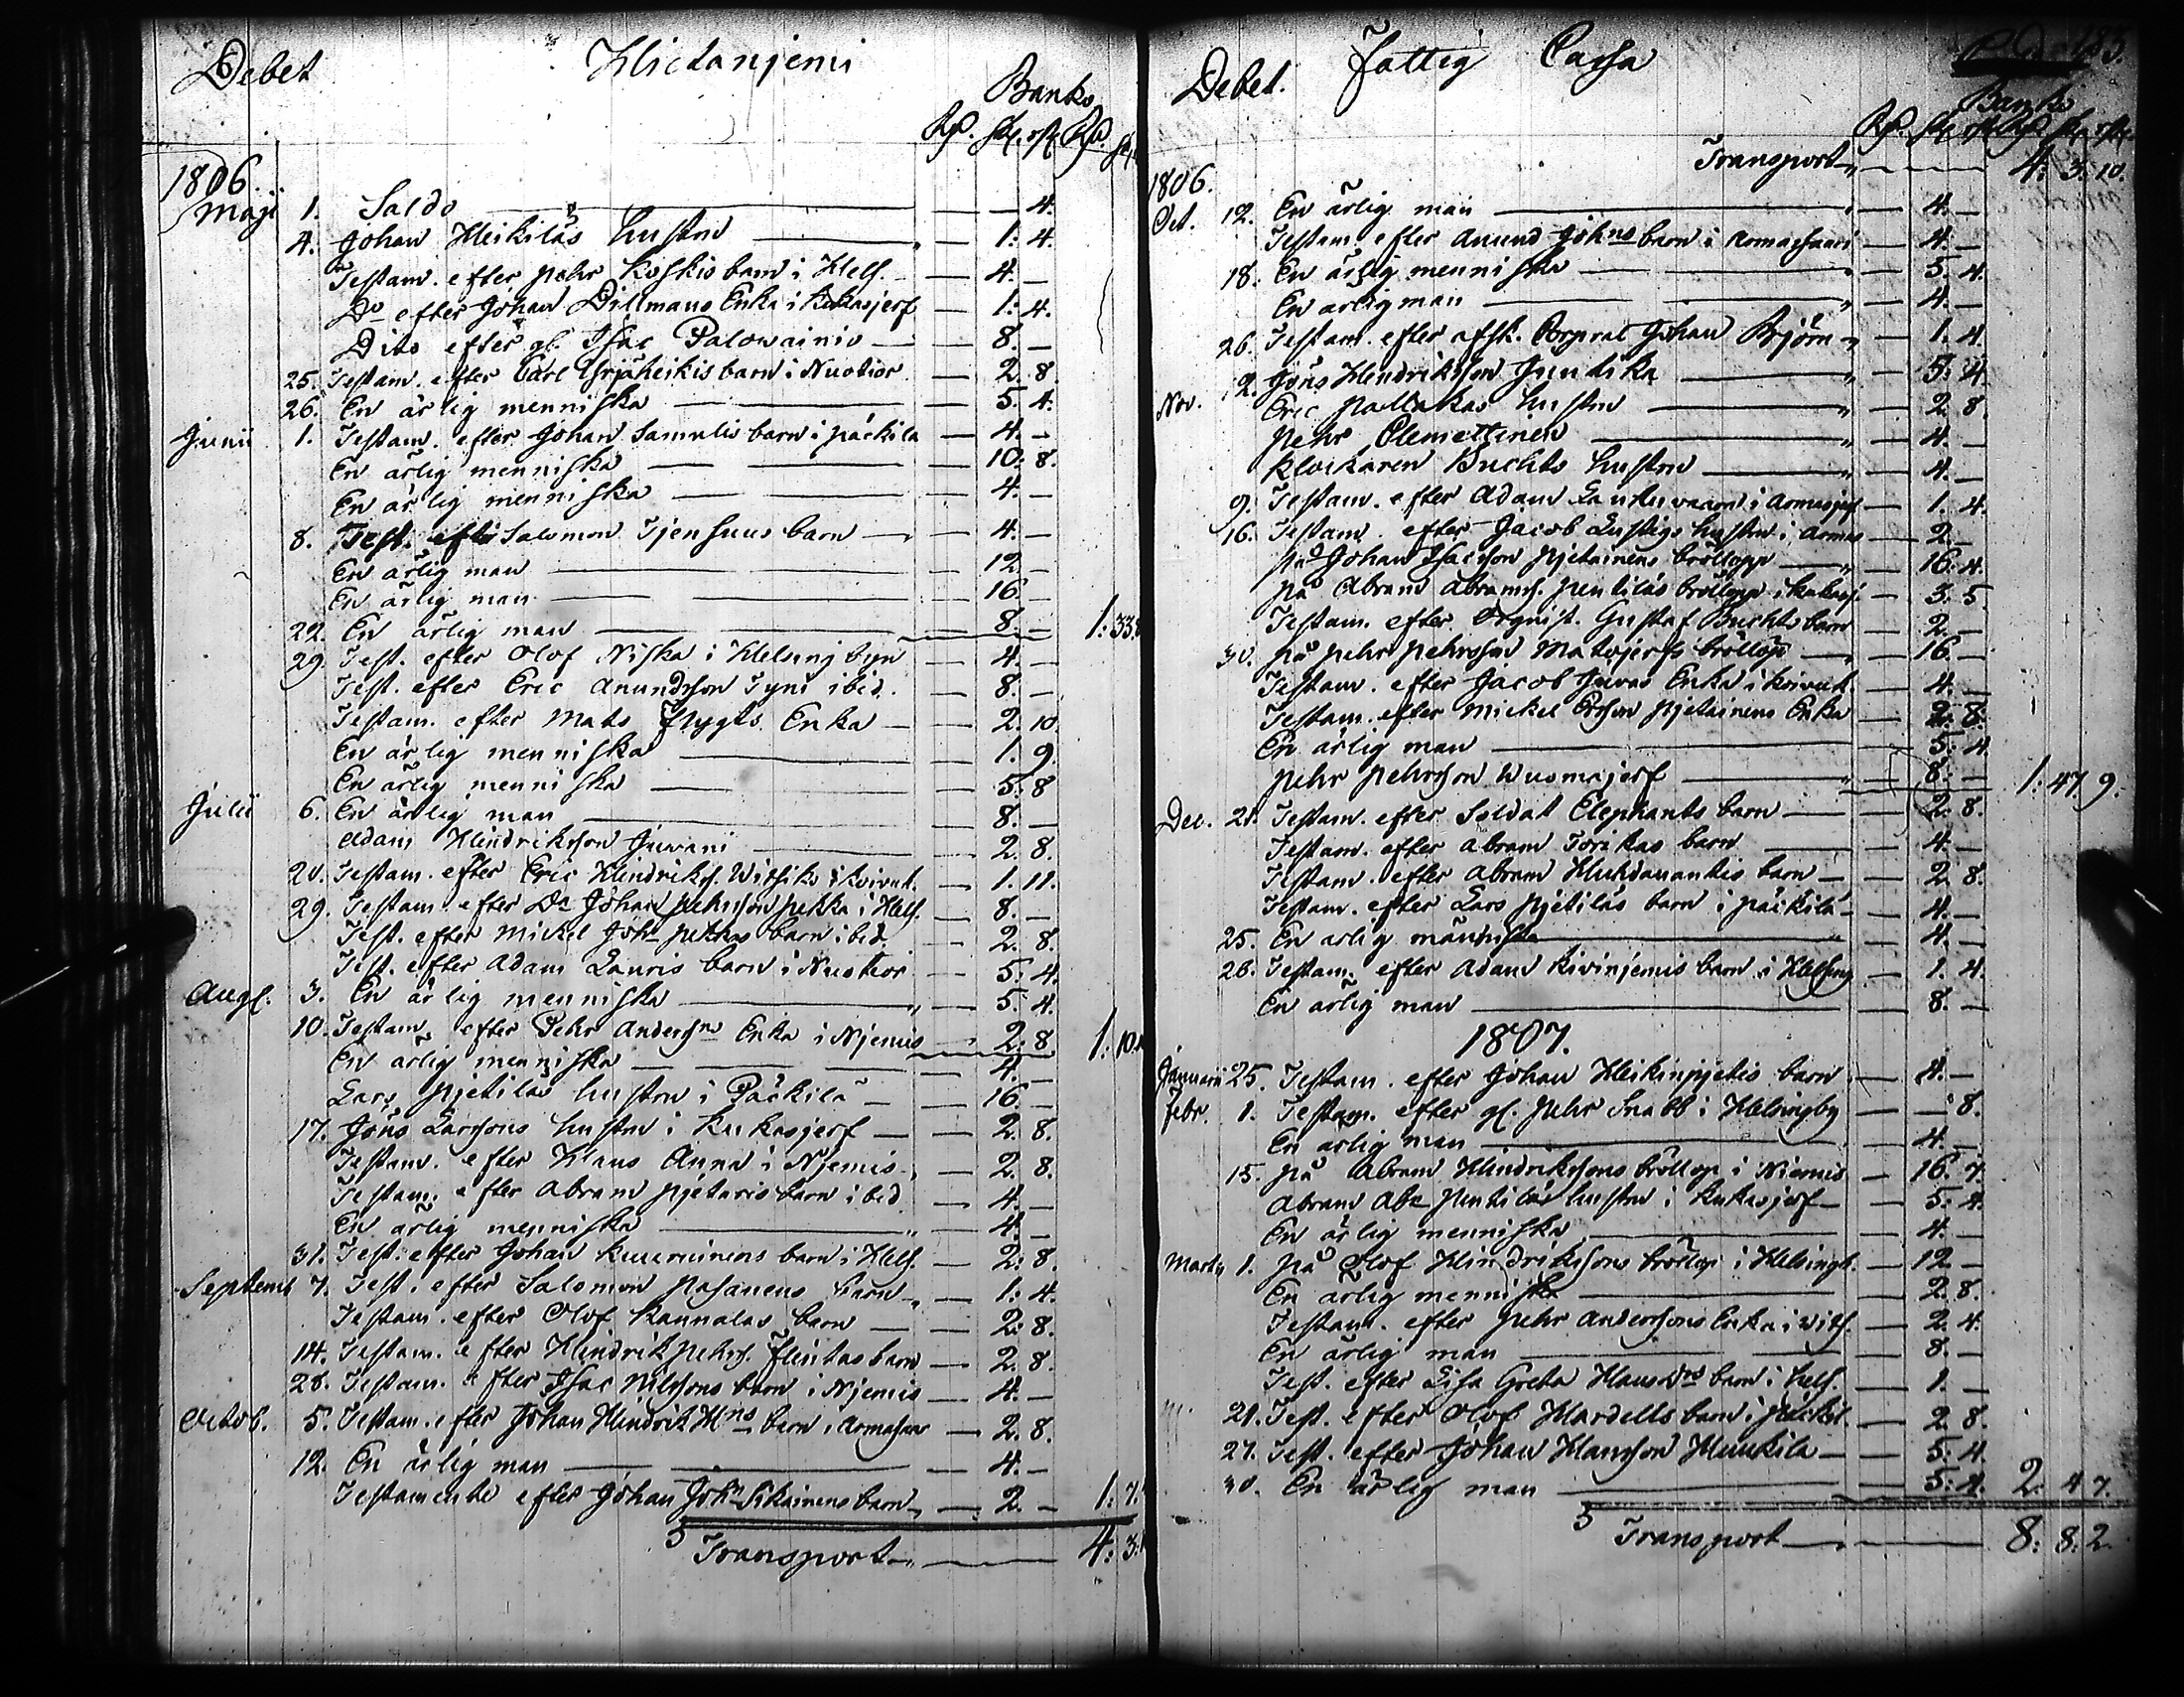 Debet Hietanjemi
Banko
Rd. sk. rst. Rd. sk.
1806.
Maji 1. Saldo — 4.
4. Johan Heikiläs hustru — 1: 4.
Testam. efter Pehr Koskis barn i Hels. — 4. —
Do efter Johan Dillmans Enka i Kukasjerf — 1: 4.
Dito efter gl. Isac Palowainio — 8. —
25. Testam. efter Carl Yrjäheikis barn i Nuotior — 2. 8.
26. En ärlig menniska — 5. 4.
Junii 1. Testam. efter Johan Samulis barn i Päckilä — 4. —
En ärlig menniska — 10: 8.
En ärlig menniska — 4. —
8. Test. efter Salomon Tjensuus barn — 4. —
En ärlig man — 12 —
En ärlig man — 16. —
22. En ärlig man — 8. — 1: 33.
29. Test. efter Olof Niska i Helsing byn — 4. —
Test. efter Eric Anundsson Tyni ibid. — 8. —
Testam. efter Mats Flygts Enka — 2. 10.
En ärlig menniska — 1. 9.
En ärlig menniska — 5. 8
Julii 6. En ärlig man — 8. —
Adam Hindriksson Juwani — 2. 8.
20. Testam. efter Eric Hindriks. Witsiko i Koivuk. — 1. 11.
29. Testam. efter Do Johan Pehrsson Pekka i Hels. — 8. —
Test. efter Mickel Johs Pekkas barn ibid. — 2. 8.
Test. efter Adam Lauris barn i Nuotior — 5: 4.
Augs. 3. En ärlig menniska — 5: 4.
10. Testam. efter Pehr Anderssns Enka i Njemis — 2: 8 1: 10.
En ärlig menniska — 4. —
Lars Pjetiläs hustru i Päckilä — 16 —
17. Jöns Larssons hustru i Kukasjerf — 2. 8.
Testam. efter Klaus Anna i Njemis — 2. 8.
Testam. efter Abram Pjetaris barn ibid — 4. —
En ärlig menniska — 4. —
31. Test. efter Johan Kuurninens barn i Hels. — 2: 8.
Septemb 7. Test. efter Salomon Pasanens barn — 1: 4.
Testam. efter Olof Kannalas barn — 2: 8.
14. Testam. efter Hindrik Pehrs. Flinkas barn — 2. 8.
28. Testam. efter Isac Nilssons barn i Njemis — 4. —
Octob. 5. Testam. efter Johan Hindrik Hns barn i Armasaar — 2. 8.
12. En ärlig man — 4. —
Testamente efter Johan Johns Sikainens barn — 2. — 1: 7.
5 Transport — 4: 3:
Debet. Fattig Cassa 183.
Banko
Rd. sk. rst. Rd. sk. rst.
Transport — 4: 3: 10.
1806.
Oct. 12. En ärlig man — 4. —
Testam. efter Anund Johns barn i Armassaari — 4. —
18. En ärlig menniska — 5. 4.
En ärlig man — 4. —
26. Testam. efter afsk. Corporal Johan Björn — 1. 4.
Nov. 2. Jöns Hindriksson Juntika — 5: 4
Eric Pallukas hustru — 2. 8.
Pehr Clemettinen — 4. —
Klockaren Buchts hustru — 4. —
9. Testam. efter Adam Lankuwaara i Armasjerf — 1. 4.
16. Testam. efter Jacob Lustigs hustru i Armas — 2. —
På Johan Isacsson Pjetainens bröllopp — 16. 4.
På Abram Abrams. Pentiläs bröllopp i Kukasj. — 3. 5.
Testam. efter Organist. Gustaf Buchts barn — 2. —
30. På Pehr Pehrsson Matojerfs bröllop — 16. —
Testam. efter Jacob Juvas Enka i Koivuk. — 4. —
Testam. efter Mickel Ersson Pjetainens Enka — 2. 8.
En ärlig man — 5: 4.
Pehr Pehrsson Wuomajerf — 8. — 1: 47 9.
Dec. 21. Testam. efter Soldat Elephants barn — 2. 8.
Testam. efter Abram Törikas barn — 4. —
Testam. efter Abram Huhdanantis barn — 2. 8.
Testam. efter Lars Pjetiläs barn i Päckilä — 4. —
25. En ärlig människa — 4. —
26. Testam. efter Adam Kivinjemis barn i Helsing — 1. 4.
En ärlig man — 8. —
1807.
Januarii 25. Testam. efter Johan Heikinpjetis barn — 4. —
Febr. 1. Testam. efter gl. Pehr Snabb i Helsingby — — 8.
En ärlig man — 4. —
15. På Abram Hindrikssons bröllop i Niemis — 16. 7.
Abram Abr. Pentiläs hustru i Kukasjerf — 5: 4.
En ärlig menniska — 4. —
Marty 1. På Olof Hindrikssons bröllop i Helsingb. — 12 —
En ärlig menniska — 2. 8.
Testam. efter Pehr Anderssons Enka i Wits. — 2. 4.
En ärlig man — 8. —
Test. efter Lisa Greta Hansdrs barn i Hels. — 1. —
21. Test. efter Olof Mardells barn i Päckil. — 2 8.
27. Test. efter Johan Hansson Hunkila — 5: 4.
30. En ärlig man — 5: 4. 2: 4 7.
5 Transport — 8: 8: 2.